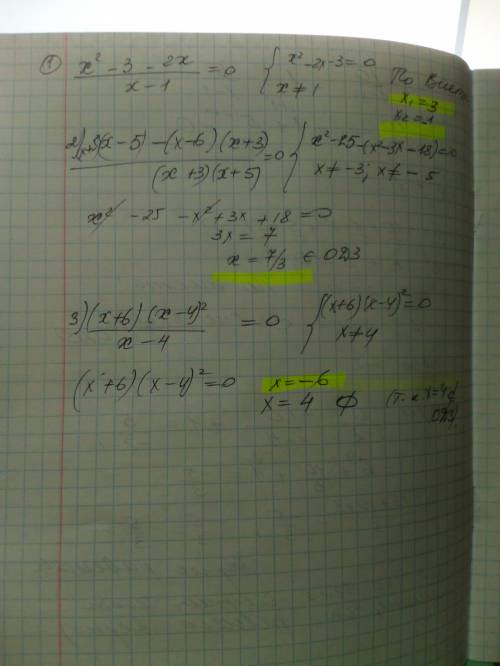 1) (x² - 3 - 2x)/(x - 1) = 0 { x² - 2x - 3 = 0
x ≠ 1
По Виета
x₁ = 3
x₂ = -1
2) (x - 5) - (x - 6)(x + 3)/(x + 3)(x + 5) = 0 { x² - 25 - (x² - 3x - 18) = 0
x ≠ -3; x ≠ -5
x² - 25 - x² + 3x + 18 = 0
3x = 7
x = 7/3 ∈ ОДЗ
3) (x + 6)(x - 4)²/(x - 4) = 0 { (x + 6)(x - 4)² = 0
x ≠ 4
(x + 6)(x - 4)² = 0 x = -6
x = 4 ∅ (т.к. x = 4 ∉
ОДЗ)